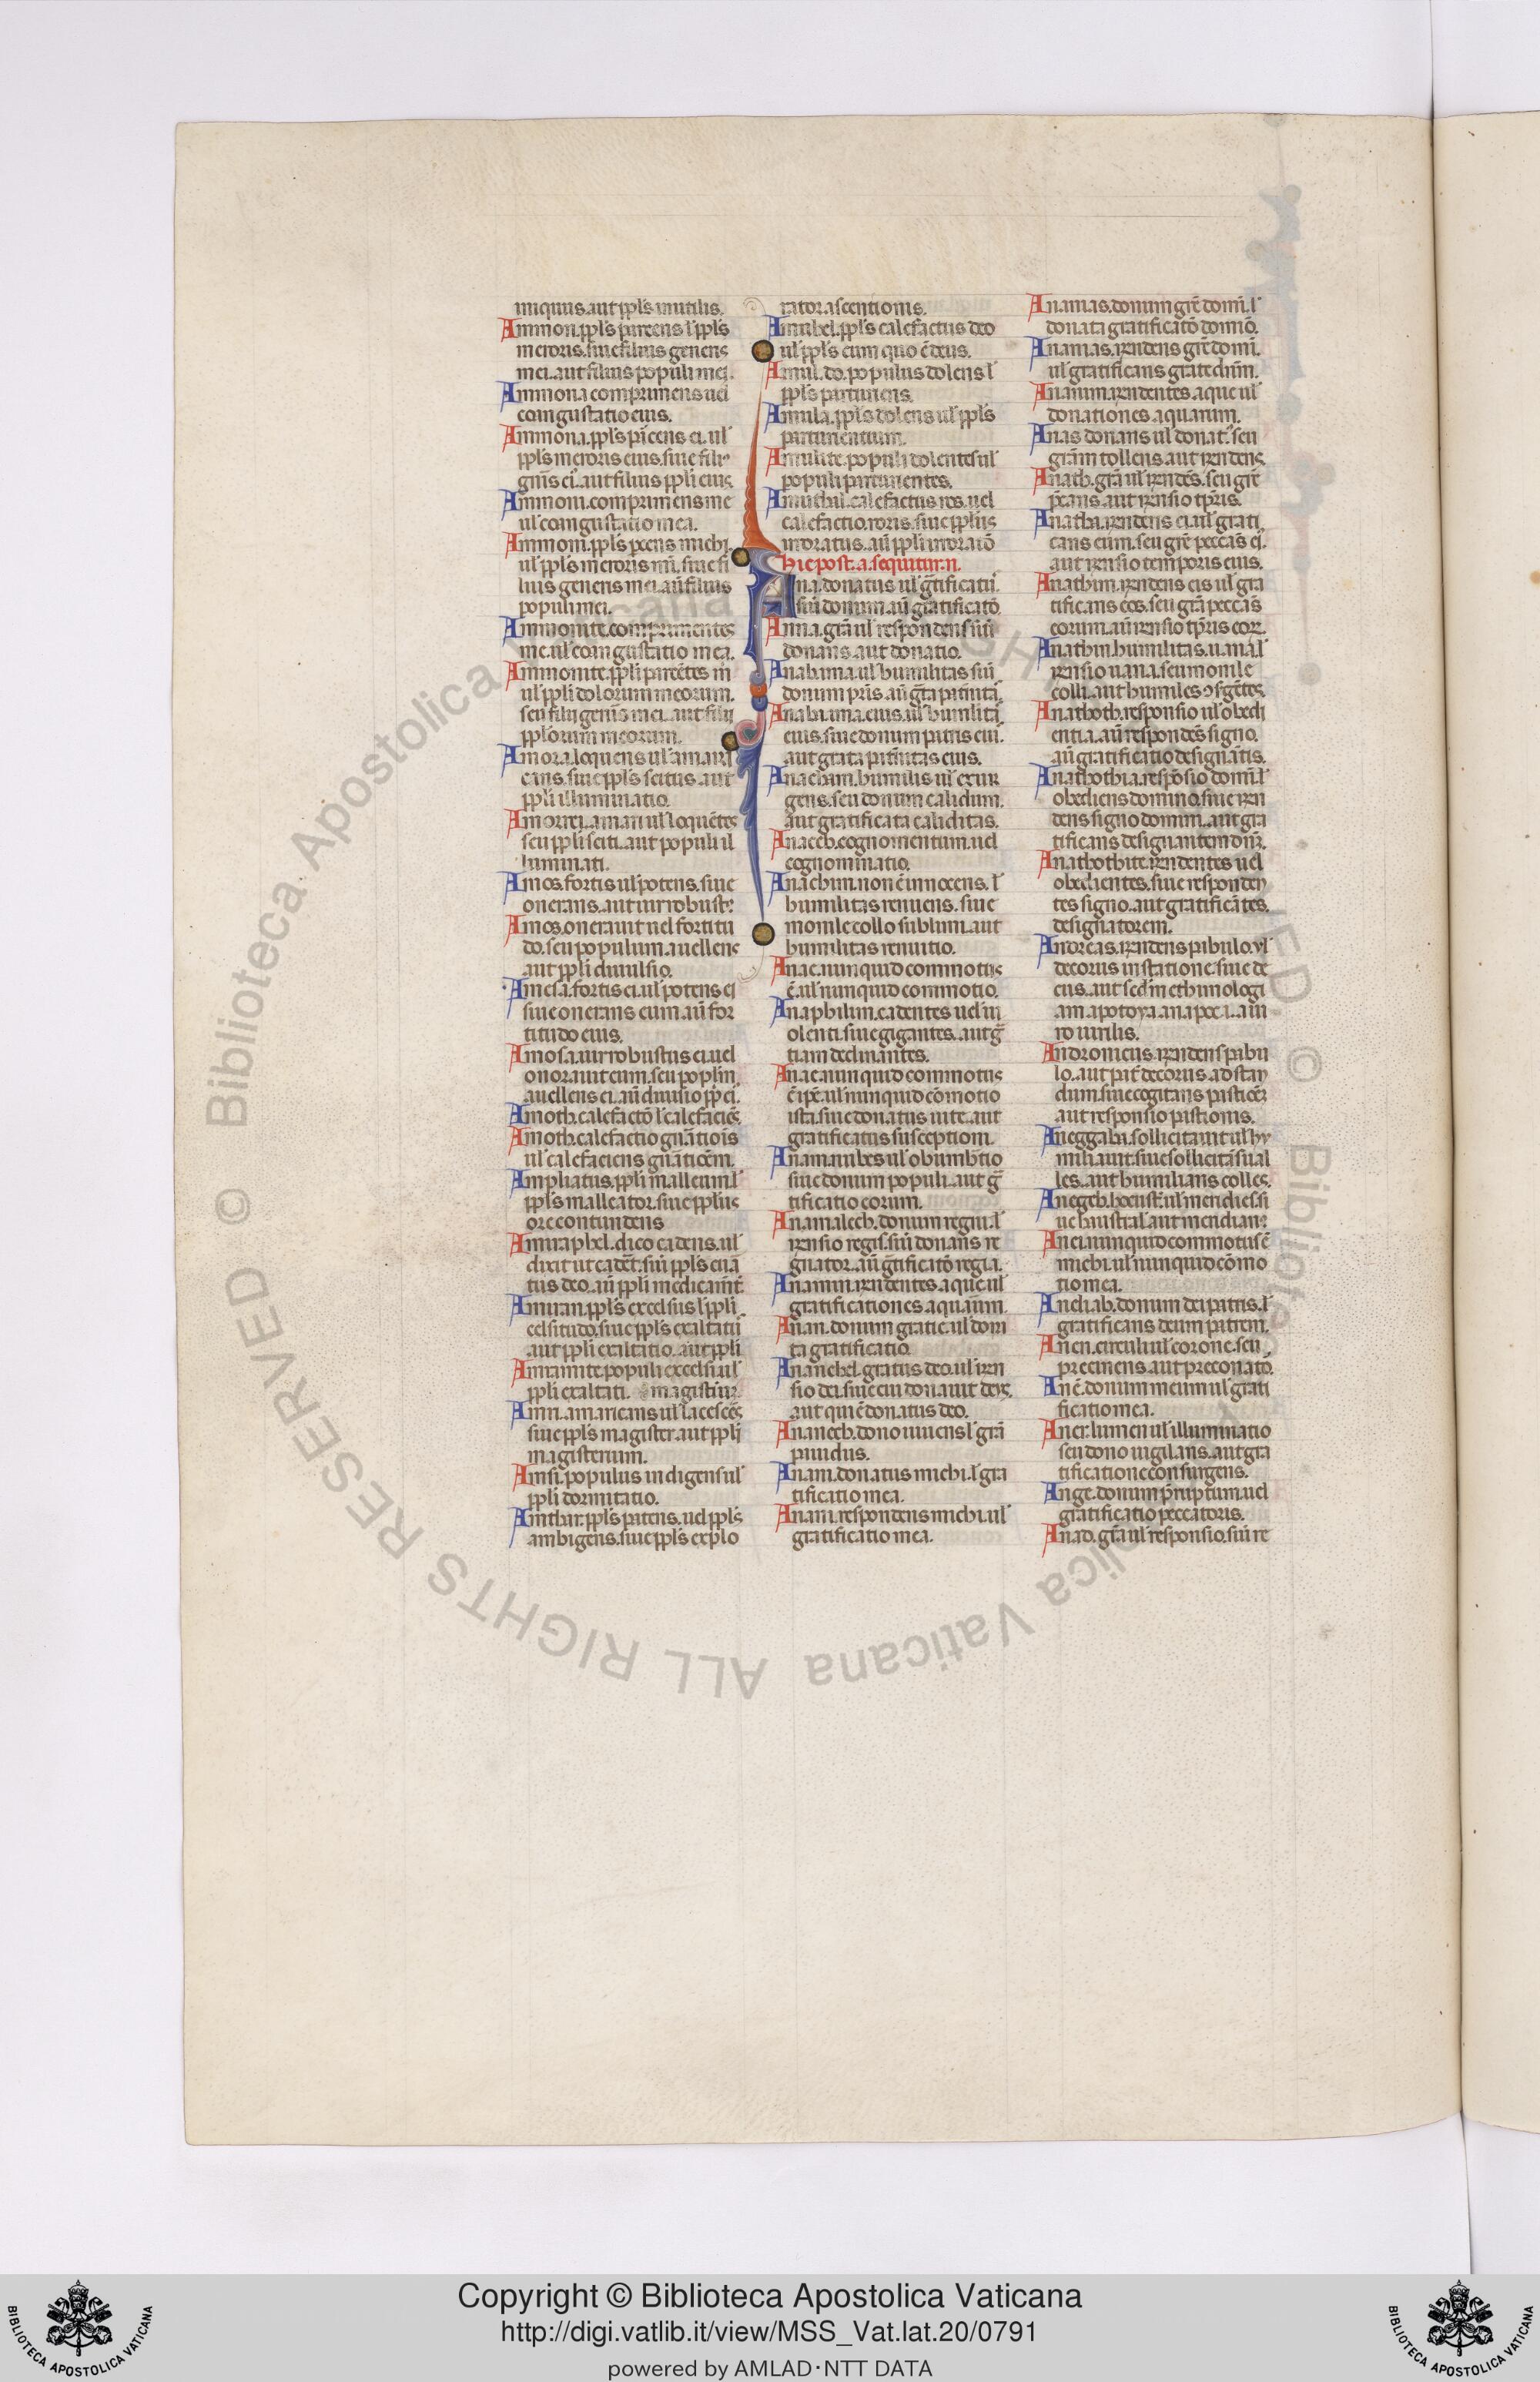 iniquus. aut ppl's inutilis.
Ammon. ppl's
meroris. siue filius generis
mei. aut filius populi mei.
Ammona comprimens uel
coangustatio eius.
ppl's meroris eius. siue
gnis ei. aut filius ppli eius
Ammoni. comprimens me
ul' coangustatio mea.
Ammoni. ppl's michi.
ul' ppl's meroris mi. siue fi
lius generis mei. aū filius
populi mei.
Ammonite. comprimentes
me. ul' coangustatio mea.
Ammonite. ppli
ul' ppli dolorum meorum.
seu filij generis mei. aut filij
pplorum meorum.
Amora. loquens ul' amari
cans. siue ppl's scitus. aut
ppli illuminatio.
Amorrei. amari ul' loquētes
seu ppli sciti. aut populi il
luminati.
Amos. fortis ul' potens. siue
onerans. aut uir robustꝰ
Amos. onerauit uel fortitu
do. seu populum auellens
aut ppli diuulsio.
Amosa. fortis ei. ul' potens ei
siue onerans eum. aū for
titudo eius.
Amosa. uir robustus ei. uel
onorauit eum. seu poplm
auellens ei. aū diuulsio pp' ei.
Amoth. calefactō l' calefaciēs.
Amoth. calefactio gnātiōis
ul' calefaciens gnātiōem.
Ampliatus. ppli malleum. l'
ppl's malleator. siue
ore contundens
Amraphel. dico cadens. ul'
dixit ut cadet. siū ppl's euā
tus deo. aū ppli medicaīnt.
Amran. ppl's excelsus l' ppli
celsitudo. siue ppl's exaltatū
aut ppli exaltatio. aut ppli
Amramite. populi excelsi. ul'
ppli exaltati. magistiuꝫ
Amri. amaricans ul' lacescēs
siue ppl's magister. aut ppli
magisterium.
Amsi. populus indigens ul'
ppli dormitatio.
Amthar. ppl's patens. uel ppl's
ambigens. siue ppl's explo
rator ascentionis.
Amubel. ppl's calefactus deo
ul' ppl's cum quo ē deus.
Amul. do. populus dolens l'
ppl's parturiens.
Amula. ppl's dolens ul' ppl's
parturientium.
Amulite. populi dolentes ul'
populi parturientes.
Amuthal. calefactus ros. uel
calefactio. roris. siue
irroratus. aū ppli irroratiō
hic post. a. sequitur. n.
Ana. donatus ul' gratificatū.
siū domum. aū gratificatō.
Anna. grā ul' respondens siū
donans. aut donatio.
Anabima. ul' humilitas siū
donum pris. aū grāta
Anabima. eius. ul' humilita
eius. siue donum patris eiꝰ.
aut grata eius.
Anachim. humilis ul' exur
gens. seu donum calidum.
aut gratificata caliditas.
Anaceb. cognomentum. uel
cognominatio.
Anachim. non ē innocens. l'
humilitas renuens. siue
monile collo sublim. aut
humilitas renuitio.
Anac. nunquid commotus
ē. ul' nunquid commotio.
Anaphilim. cadentes uel ui
olenti. siue gigantes. aut grā
tiam declinantes.
Anac. nunquid commotus
ē ipē. ul' nunquid cōmotio
ista. siue donatus uite. aut
gratificatus susceptiom.
Anam. nubes ul' obumbratio
siue donum populi. aut grā
tificatio eorum.
Anamalech. donum regni. l'
rñsio regis. siū donans re
gnator. aū gratificatō regia.
Anamim. rñdentes aque ul'
gratificationes aquarum.
Anan. donum gratie. ul' dona
ta gratificatio.
Ananehel. gratus deo. ul' rñ
sio dei. siue cui donauit deꝰ.
aut qui ē donatus deo.
Ananeeb. dono uiuens l' grā
piuidus.
Anani. donatus michi. l' gra
tificatio mea.
Anani. respondens michi. ul'
gratificatio mea.
Ananias. donum grē domī. l'
donata gratificatō domīo.
Ananias. rñdens grē domī.
ul' gratificans
Ananim. rñdentes aque ul'
donationes aquarum.
Anas donans ul' donatꝰ. seu
gratiam tollens. aut rñdens.
Anath. grā ul' rñdēs. seu grē
aut rñsio tpris.
Anatha. rñdens ei. ul' grati
cans eum. seu grē peccās ei.
aut rñsio temporis eius.
Anathim. rñdens eis ul' gra
tificans eos. seu grā peccās
eorum. aū rñsio tpris eoꝝ.
Anathin. humilitas. una. l'
rñsio uana. seu monile
colli. aut humiles
Anathoth. responsio ul' obedi
entia. aū respondēs signo.
aū gratificatio designātis.
Anathothia. respōsio domī. l'
obediens domino. siue rñ
dens signo domini. aut gra
tificans designantem dnm.
Anathothite. rñdentes uel
obedientes. siue responden
tes signo. aut gratificātes
designatorem.
Andreas. rñdens pabulo. ul'
decorus in statione. siue de
cus. aut scdm ethimologi
am apotoya. anapoci. a ui
ro uirilis.
Andronicus. rñdens pabu
lo. aut pat' decorus. ad stan
dum. siue cogitans
aut responsio pastionis.
Aneggabi. sollicitauit ul' hu
miliauit. siue sollicitās ual
les. aut humilians colles.
Anegeb. hoc ē ul' meridies. si
ue haustral' aut meridianꝰ
Anei. nunquid commotus ē
michi. ul' nunquid cōmo
tio mea.
Aneliab. donum dei patris. l'
gratificans deum patrem.
Anen. circuli ul' corone. seu
precinens. aut preconatō.
Anē. donum meum ul' grati
ficatio mea.
Aner. lumen ul' illuminatio
seu dono uigilans. aut gra
tificatione consurgens.
Ange. donum pruptum. uel
gratificatio peccatoris.
Aniad. grā ul' responsio. siū re
© Biblioteca Apostolica Vaticana ALL RIGHTS RESERVED
Copyright © Biblioteca Apostolica Vaticana
http://digi.vatlib.it/view/MSS_Vat.lat.20/0791
powered by AMLAD·NTT DATA
BIBLIOTECA APOSTOLICA VATICANA
BIBLIOTECA APOSTOLICA VATICANA